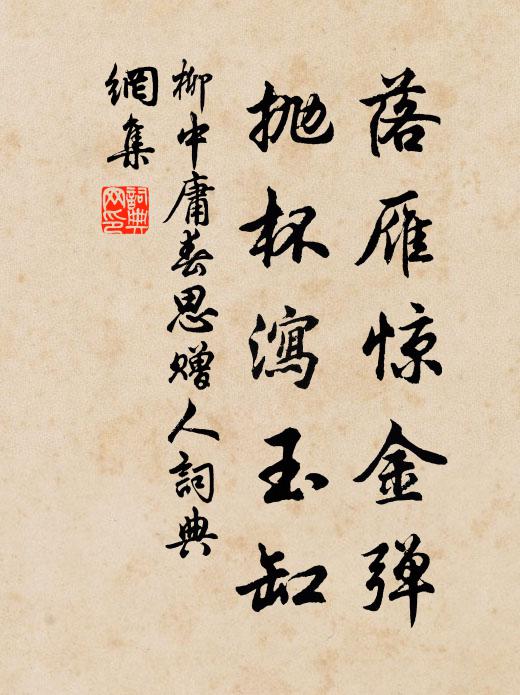 落雁惊金弹
抛杯瀉玉缸
柳中庸春思赠人詞典
網集
詞典网印